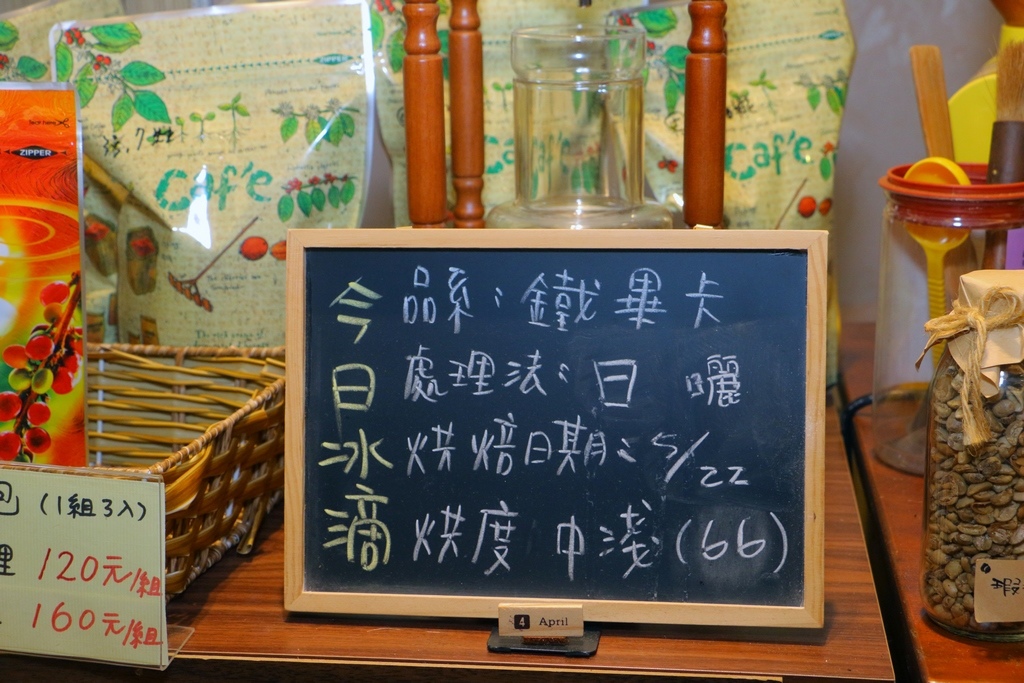 ZIPPER
Caf'e
Caf'e
今日冰滴
品系:鐵畢卡
處理法:日曬
烘焙日期:5/22
烘度 中淺(66)
4 April
包(1組3入)
理 120元/組
160元/組